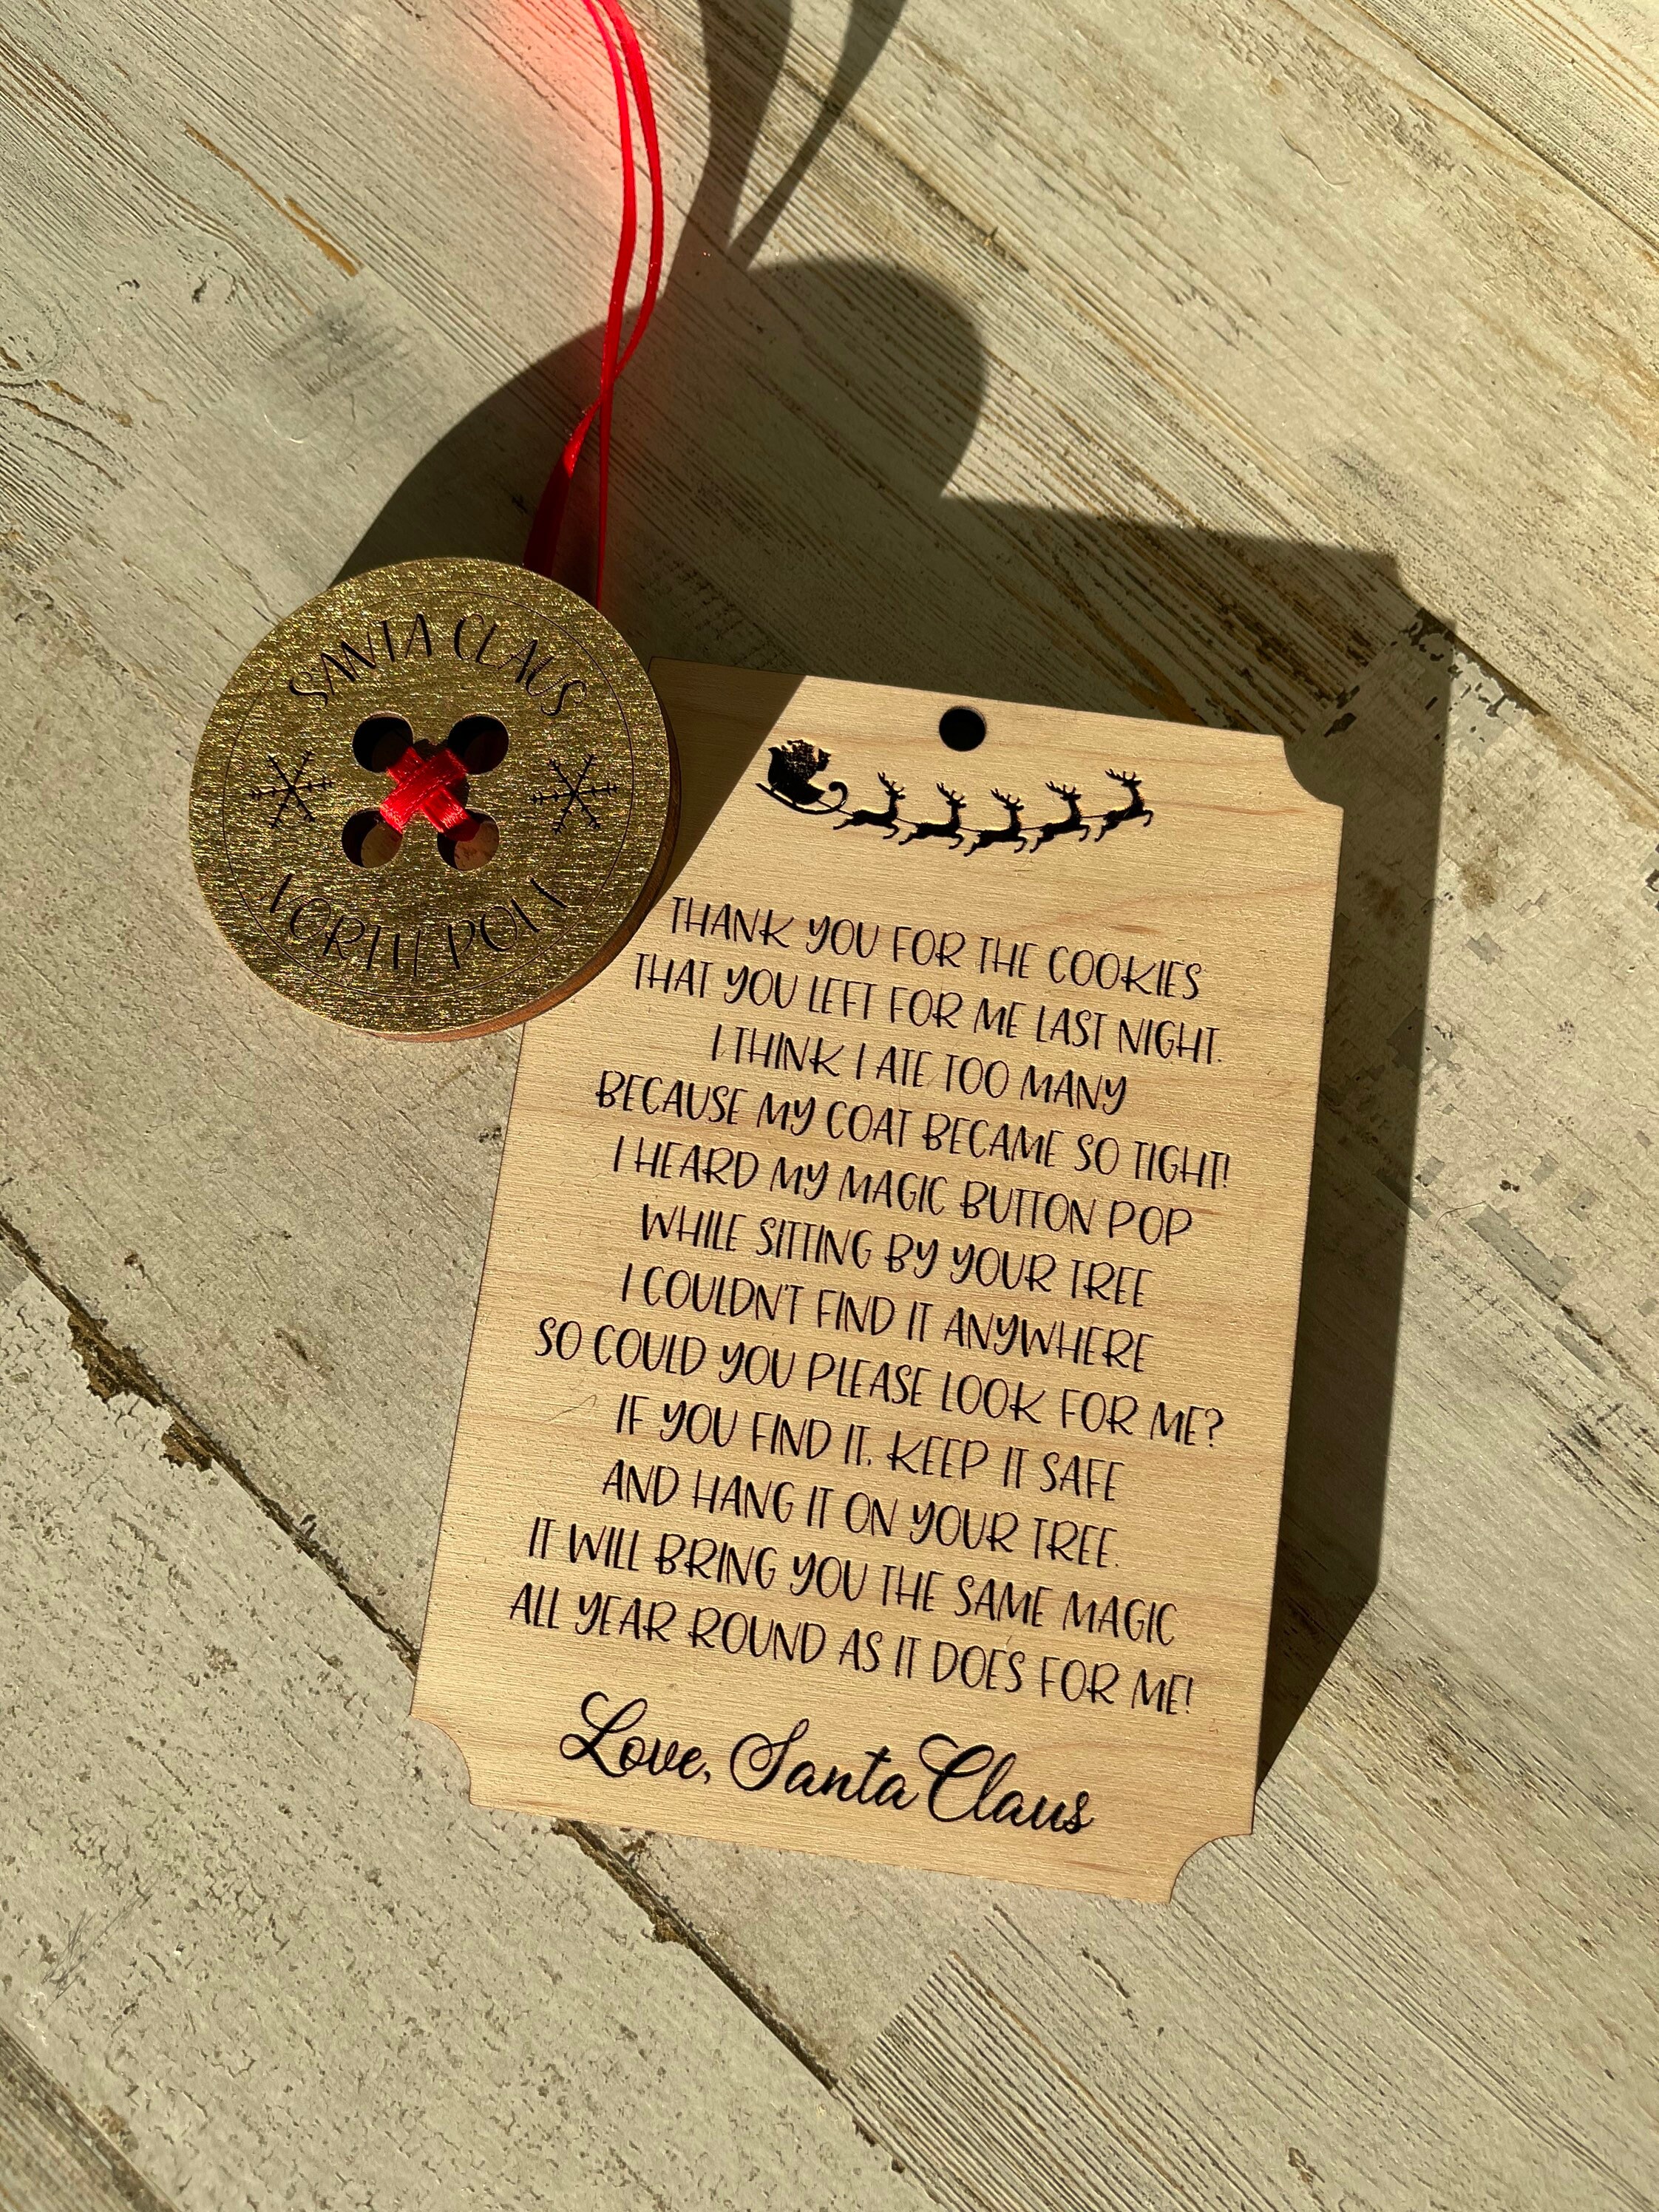 SANTA CLAUS
NORTH POLE
THANK YOU FOR THE COOKIES
THAT YOU LEFT FOR ME LAST NIGHT.
I THINK I ATE TOO MANY
BECAUSE MY COAT BECAME SO TIGHT!
I HEARD MY MAGIC BUTTON POP
WHILE SITTING BY YOUR TREE
I COULDN'T FIND IT ANYWHERE
SO COULD YOU PLEASE LOOK FOR ME?
IF YOU FIND IT, KEEP IT SAFE
AND HANG IT ON YOUR TREE.
IT WILL BRING YOU THE SAME MAGIC
ALL YEAR ROUND AS IT DOES FOR ME!
Love, Santa Claus